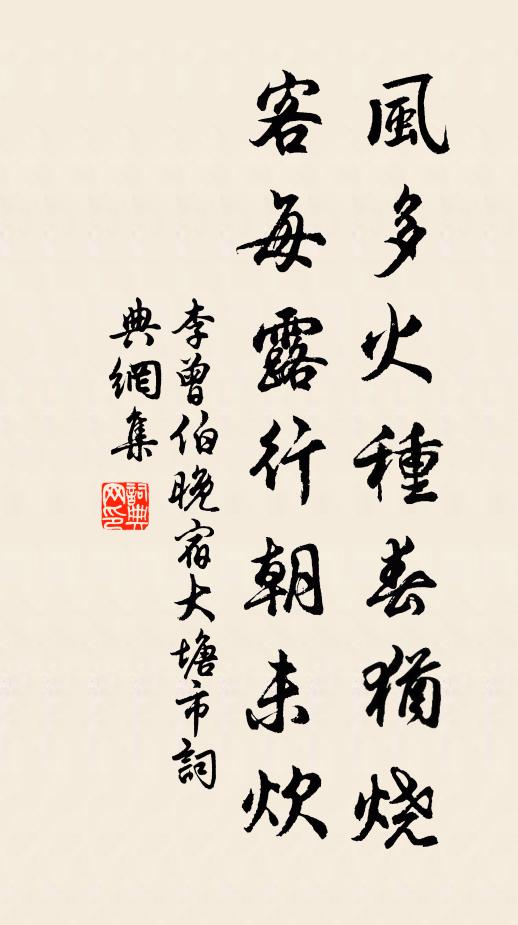 風多火種春猶烧
客每露行朝未炊
李曾伯晚宿大塘市詞
典網集
詞典
网印